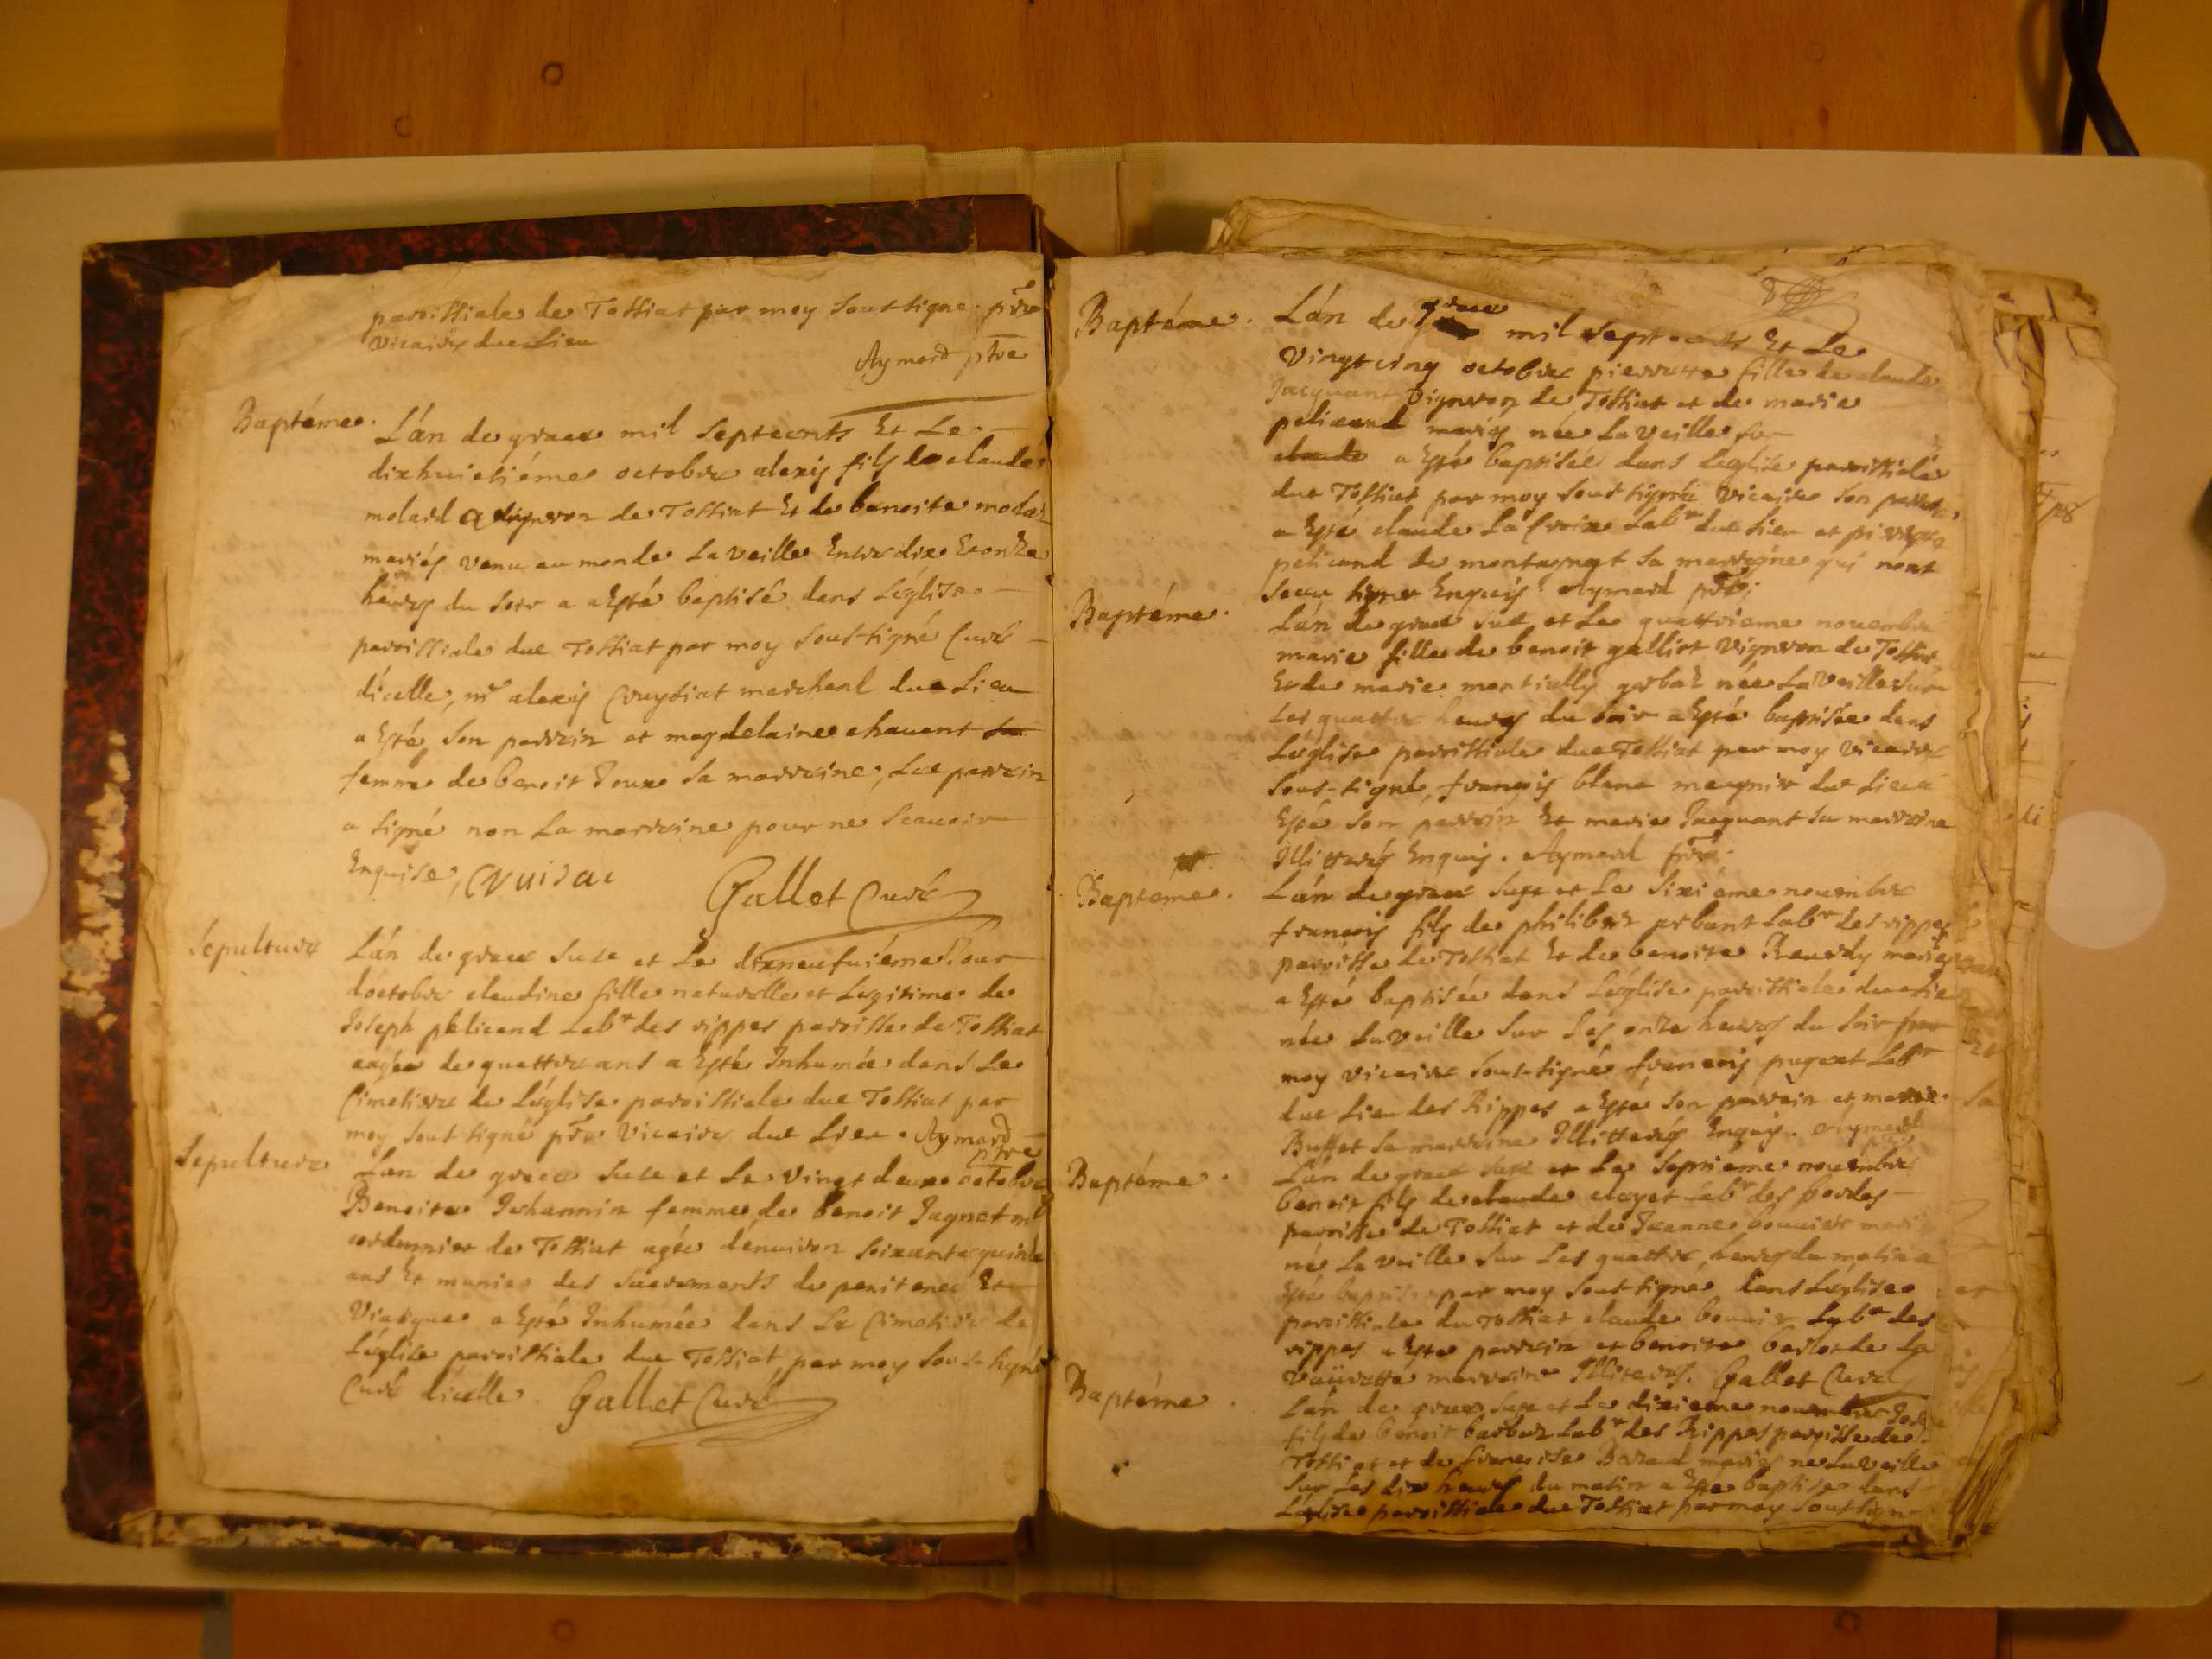 paroissiale de Tossiat par moy sout signe ptre
vicaire due Lieu
Aymard ptre
Baptéme. L'án de grace mil septcents Et Le
dixhuictiéme octobre alexis fils de claude
molard vigneron de Tossiat Et de benoite
mariés venu au monde La veille Entre dix Et onze
heures du soir a a Esté baptisé dans L'églisse
paroissiale due Tossiat par moy Soussigné Curé
d'icelle, mr alexis Cruysiat marchant due Lieu
a Esté Son parrain et magdelaine chavent
femme de benoit Joux Sa marraine, Le parrain
a signé non La marraine pour ne Scauoir
Enquise,
Gallet Curé
Sepulture L'án de grace Suse et Le dixneufuiéme Jour
d'octobre claudine fille naturelle et Legitime de
Joseph pelicand Labr des rippes paroisse de Tossiat
aagée de quattre ans a Esté Inhumée dans Le
Cimetiere de L'églisse paroissiale due Tossiat par
moy sout signé ptre Vicaire due Lieu. Aymard
ptre
Sepulture L'an de grace Suse et Le vingt deuxe octobre
Benoite Johannin femme de benoit Jagnet mt
cordonnier de Tossiat agée d'enuiron soixante quinze
ans Et munie des Sacrements de penitence Et
Viatique a Esté Inhumée dans Le Cimetiere de
L'églisse paroissiale due Tossiat par moy sous signé
Curé d'icelle. Gallet Curé
8
Baptéme. L'án de grace mil septcents Et Le
Vingtcinq octobre pierrette fille de claude
Jacquant vigneron de Tossiat et de marie
pelicand mariés née La veille
a Esté baptisée dans L'eglise paroissiale
due Tossiat par moy sout signé vicaire son parrain
a Esté claude La Croix Labr due Lieu et pierrette
pelicand de montagnat Sa marraine qui nont
Sceu signer Enquis. Aymard ptre
Baptéme. L'án de grace Suse et Le quattrieme nouembre
marie fille de benoit galliot vigneron de Tossiat
Et de marie née La Veille Sur
Les quattre heures du soir a Esté baptisée dans
L'églisse paroissiale due Tossiat par moy vicaire
Sous-signé, francois blanc meynir due Lieu a
Esté Son parrain Et marie Jacquant Sa marraine
Illitterés Enquis. Aymard ptre
Bapteme. L'án de grace Suse et Le Sixiéme nouembre
francois fils de philibert arbant Labr des rippes
paroisse de Tossiat Et de benoite mariés
a Esté baptisée dans L'églisse paroissiale due Lieu
née La Veille Sur Les onze heures du Soir par
moy vicaire Sous-signé francois pugeat Labr
due Lieu des Rippes a Esté Son parrain et marie
Buffet Sa marraine Illitterés Enquis. Aymard
ptre
Baptéme. L'án de grace Suse et Le Septiéme nouembre
benoit fils de claude Labr des bordes
paroisse de Tossiat et de Jeanne bouuier
né La veille Sur Les quattre heures du matin a
Esté baptisé par moy Soussigné dans L'églisse
paroissiale du Tossiat claude bouuier Labr des
rippes a Esté parrain et benoite de La
marraine Illiterés. Gallet Curé
Baptéme. L'án de grace Suse et Le dixieme nouembre
fils de benoit barbaz Labr des Rippes paroisse de
Tossiat et de francoise mariés né La Veille
Sur Les dix heures du matin a Esté baptisé dans
L'églisse paroissiale due Tossiat par moy Soussigné